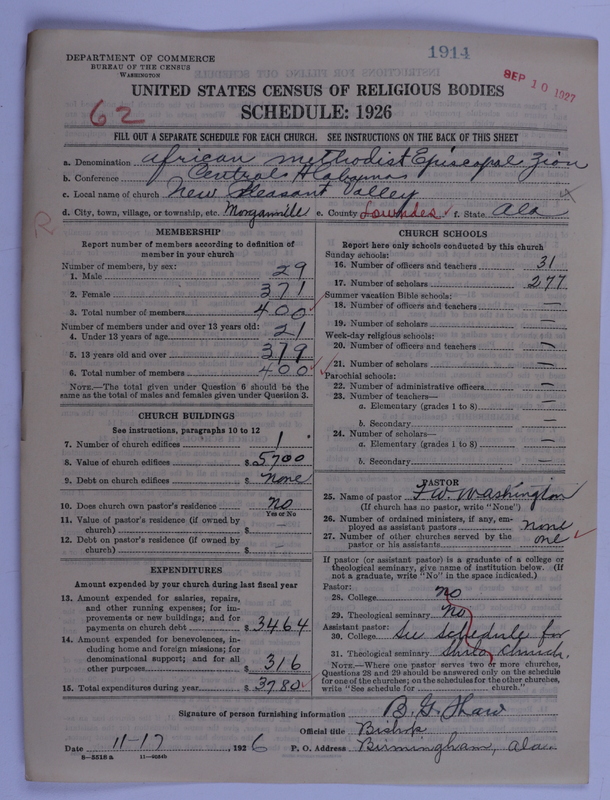 1914
DEPARTMENT OF COMMERCE
BUREAU OF THE CENSUS
WASHINGTON
SEP 10 1927
UNITED STATES CENSUS OF RELIGIOUS BODIES
62
SCHEDULE: 1926
FILL OUT A SEPARATE SCHEDULE FOR EACH CHURCH. SEE INSTRUCTIONS ON THE BACK OF THIS SHEET
a. Denomination African Methodist Episcopal Zion
b. Conference Central Alabama
c. Local name of church New Pleasant Valley
d. City, town, village, or township, etc. Morganville e. County Lowndes f. State Ala
R
MEMBERSHIP
Report number of members according to definition of
member in your church
Number of members, by sex:
1. Male 29
2. Female 371
3. Total number of members 400
Number of members under and over 13 years old:
4. Under 13 years of age 21
5. 13 years old and over 379
6. Total number of members 400
NOTE.—The total given under Question 6 should be the
same as the total of males and females given under Question 3.
CHURCH BUILDINGS
See instructions, paragraphs 10 to 12
7. Number of church edifices 1
8. Value of church edifices $ 5700
9. Debt on church edifices $ none
10. Does church own pastor's residence? no
Yes or No
11. Value of pastor's residence (if owned by
church) $ —
12. Debt on pastor's residence (if owned by
church) $ —
EXPENDITURES
Amount expended by your church during last fiscal year
13. Amount expended for salaries, repairs,
and other running expenses; for im-
provements or new buildings; and for
payments on church debt $ 3464
14. Amount expended for benevolences, in-
cluding home and foreign missions; for
denominational support; and for all
other purposes $ 316
15. Total expenditures during year $ 3780
CHURCH SCHOOLS
Report here only schools conducted by this church
Sunday schools:
16. Number of officers and teachers 31
17. Number of scholars 277
Summer vacation Bible schools:
18. Number of officers and teachers —
19. Number of scholars —
Week-day religious schools:
20. Number of officers and teachers —
21. Number of scholars —
Parochial schools:
22. Number of administrative officers —
23. Number of teachers—
a. Elementary (grades 1 to 8) —
b. Secondary —
24. Number of scholars—
a. Elementary (grades 1 to 8) —
b. Secondary —
PASTOR
25. Name of pastor F. W. Washington
(If church has no pastor, write "None")
26. Number of ordained ministers, if any, em-
ployed as assistant pastors none
27. Number of other churches served by the
pastor or his assistants one
If pastor (or assistant pastor) is a graduate of a college or
theological seminary, give name of institution below. (If
not a graduate, write "No" in the space indicated.)
Pastor:
28. College no
29. Theological seminary No
Assistant pastor:
30. College See schedule for
31. Theological seminary Shilo Church.
NOTE.—Where one pastor serves two or more churches,
Questions 28 and 29 should be answered only on the schedule
for one of the churches; on the schedules for the other churches,
write "See schedule for church."
Signature of person furnishing information B. G. Shaw
Official title Bishop
Date 11-17, 1926 P. O. Address Birmingham, Ala.
8—5518 a